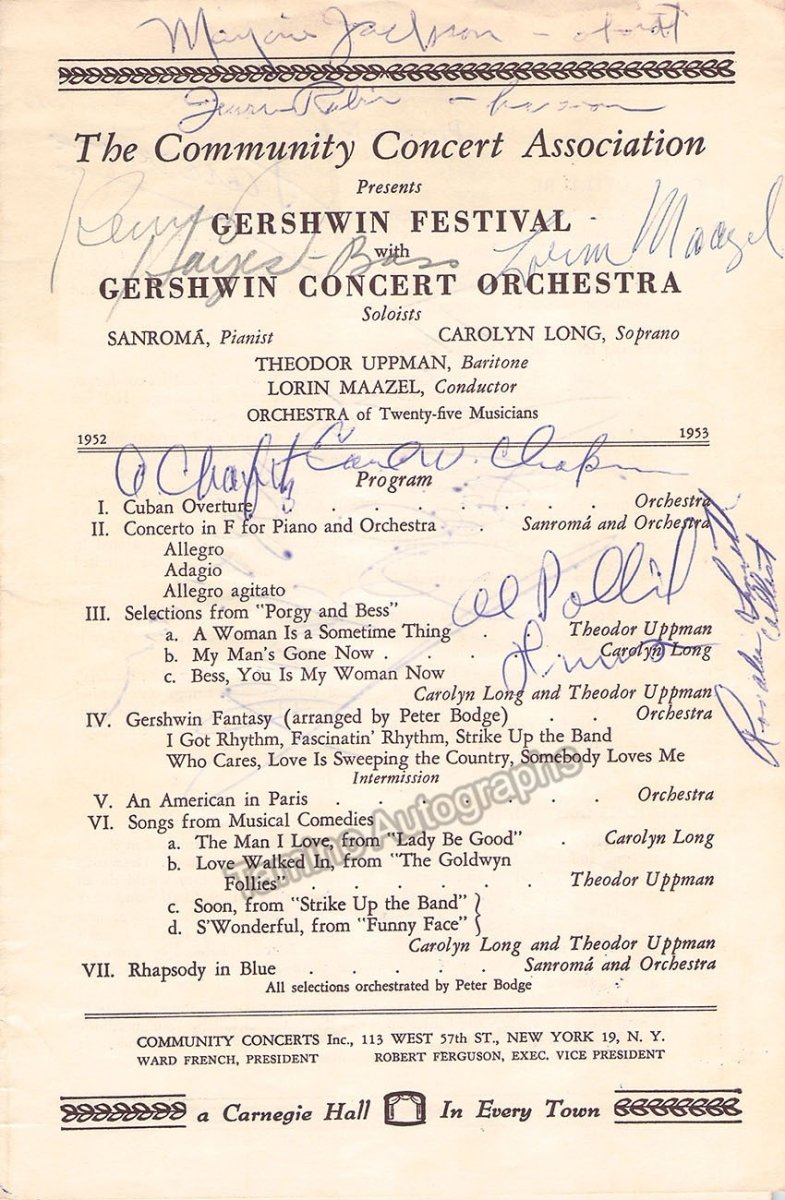 Marjorie Jackson –
The Community Concert Association
Presents
GERSHWIN FESTIVAL
with
Hayes – Bass
Lorin Maazel
GERSHWIN CONCERT ORCHESTRA
Soloists
SANROMÁ, Pianist CAROLYN LONG, Soprano
THEODOR UPPMAN, Baritone
LORIN MAAZEL, Conductor
ORCHESTRA of Twenty-five Musicians
1952 1953
Program
I. Cuban Overture . . . . . . . . Orchestra
II. Concerto in F for Piano and Orchestra . Sanromá and Orchestra
Allegro
Adagio
Allegro agitato
Al
III. Selections from "Porgy and Bess"
a. A Woman Is a Sometime Thing . . Theodor Uppman
b. My Man's Gone Now . . . . Carolyn Long
c. Bess, You Is My Woman Now
Carolyn Long and Theodor Uppman
IV. Gershwin Fantasy (arranged by Peter Bodge) . . Orchestra
I Got Rhythm, Fascinatin' Rhythm, Strike Up the Band
Who Cares, Love Is Sweeping the Country, Somebody Loves Me
Intermission
V. An American in Paris . . . . . . . Orchestra
VI. Songs from Musical Comedies
a. The Man I Love, from "Lady Be Good" . Carolyn Long
b. Love Walked In, from "The Goldwyn
Follies" . . . . . . . Theodor Uppman
c. Soon, from "Strike Up the Band" }
d. S'Wonderful, from "Funny Face" {
Carolyn Long and Theodor Uppman
VII. Rhapsody in Blue . . . . . Sanromá and Orchestra
All selections orchestrated by Peter Bodge
Tamino Autographs
COMMUNITY CONCERTS Inc., 113 WEST 57th ST., NEW YORK 19, N. Y.
WARD FRENCH, PRESIDENT ROBERT FERGUSON, EXEC. VICE PRESIDENT
a Carnegie Hall In Every Town